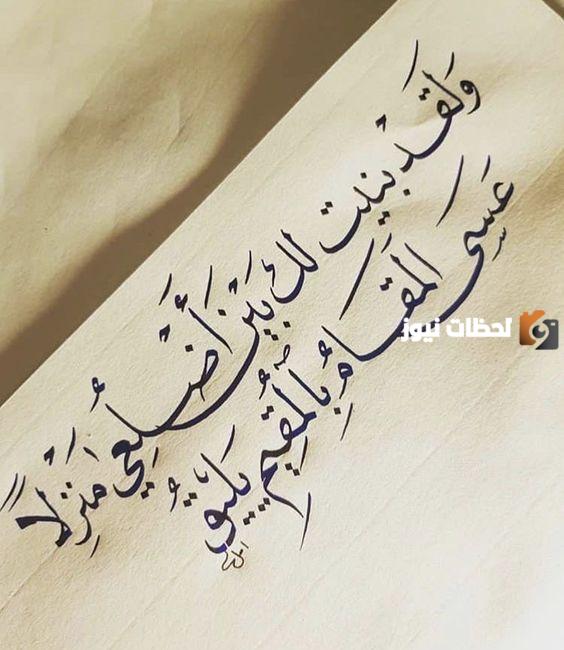 وَلَقَدْ بنيت لك بَيْنَ أَضْلُعِي مَنْزِلاً
عَسَى المَقَامُ بِالمُقِيمِ يَلِيقُ
لحظات نيوز